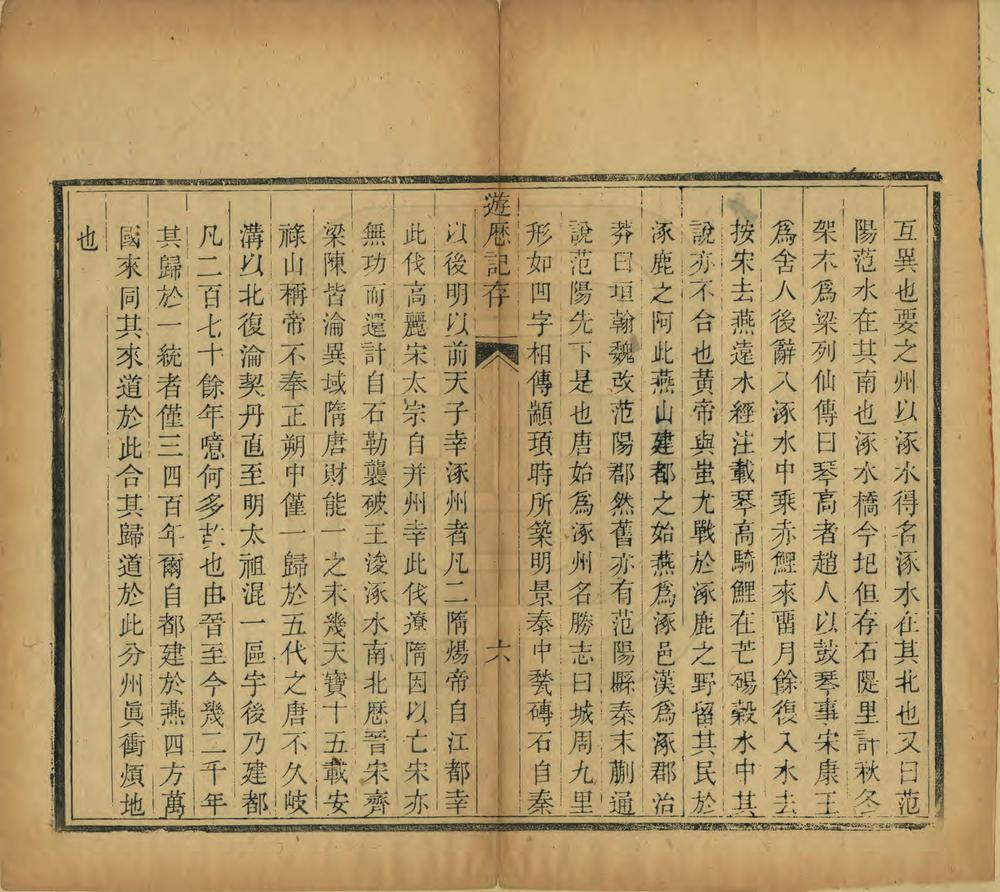 互異也要之州以涿水得名涿水在其北也又曰范
陽范水在其南也涿水橋今圯但存石隄里許秋冬
架木爲梁列仙傳曰琴高者趙人以鼓琴事宋康王
爲舍人後辭入涿水中乘赤鯉來畱月餘復入水去
按宋去燕遠水經注載琴高騎鯉在芒碭穀水中其
說亦不合也黃帝與蚩尤戰於涿鹿之野留其民於
涿鹿之阿此燕山建都之始燕爲涿邑漢爲涿郡治
莽曰垣翰魏改范陽郡然舊亦有范陽縣秦末蒯通
說范陽先下是也唐始爲涿州名勝志曰城周九里
形如凹字相傳顓頊時所築明景泰中甃磚石自秦
遊歷記存
六
以後明以前天子幸涿州者凡二隋煬帝自江都幸
此伐高麗宋太宗自并州幸此伐遼隋因以亡宋亦
無功而還計自石勒襲破王浚涿水南北歷晉宋齊
梁陳皆淪異域隋唐財能一之未幾天寶十五載安
祿山稱帝不奉正朔中僅一歸於五代之唐不久岐
溝以北復淪契丹直至明太祖混一區宇後乃建都
凡二百七十餘年噫何多苦也由晉至今幾二千年
其歸於一統者僅三四百年爾自都建於燕四方萬
國來同其來道於此合其歸道於此分州眞衝煩地
也